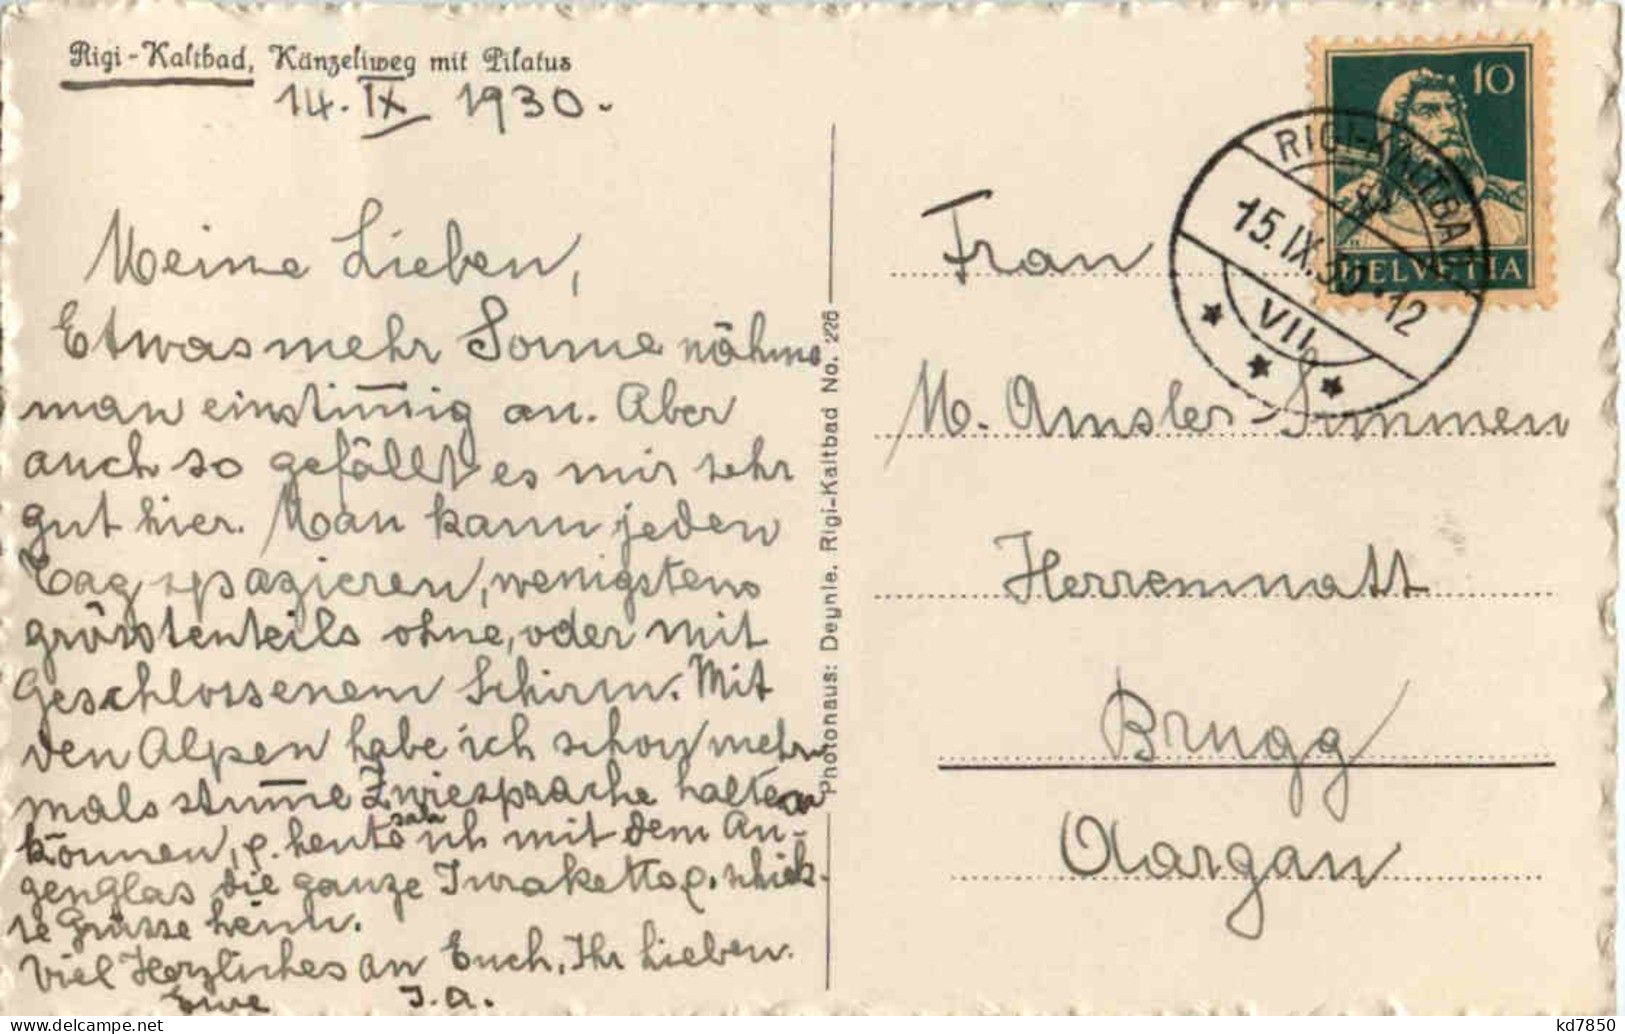 Rigi-Kaltbad, Känzeliweg mit Pilatus
14. IX 1930.
Meine Lieben,
Etwas mehr Sonne nähme
man einstim̅ig an. Aber
auch so gefällt es mir sehr
gut hier. Man kann jeden
Tag spazieren, wenigstens
grösstenteils ohne, oder mit
geschlossenem Schirm. Mit
den Alpen habe ich schon mehr
mals stum̅e Zwiesprache halten
können, u. heute sah ich mit dem Au-
genglas die ganze Jurakette u. schick-
te Grüsse heim.
Viel Herzliches an Euch, Ihr Lieben.
Eure J.A.
Photohaus: Deynle. Rigi-Kaltbad No. 226
10
HELVETIA
RIGI-KALTBAD
15.IX.30-12
VII
Frau
M. Amsler-Simmen
Herrenmatt
Brugg
Aargau
delcampe.net
kd7850